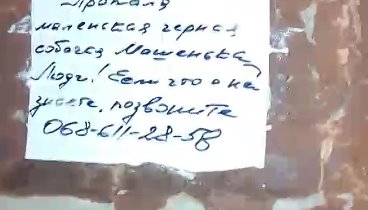 Пропала
маленькая черная
собачка Машенька,
Люди! Если что о ней
знаете, позвоните
068-611-28-58